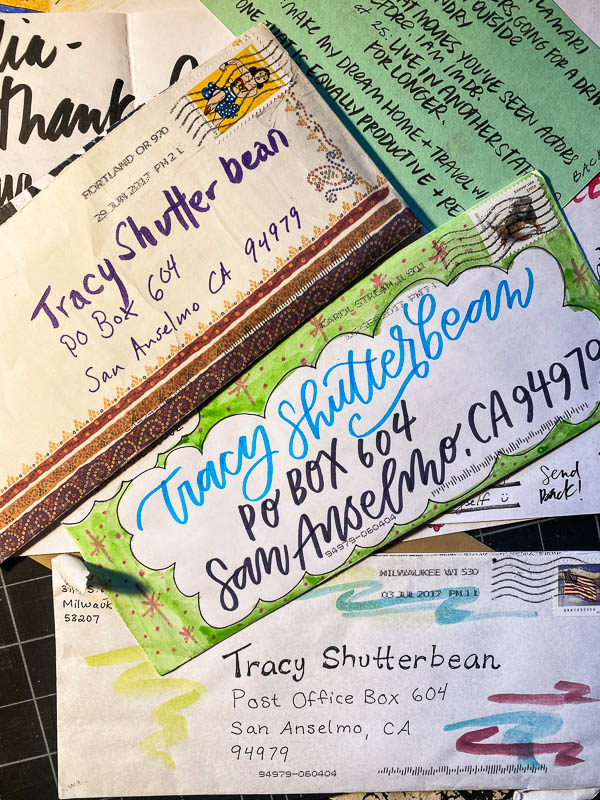 lia-
Thank
GOING FOR A DRIN
MOVES YOU'VE SEEN ACTORS
OUTSIDE
AT 25. LIVE IN ANOTHER STATE
FOR LONGER.
MAKE MY DREAM HOME + TRAVEL W
ONE THAT IS EQUALLY PRODUCTIVE + RE
BACK
PORTLAND OR 970
29 JUN 2017 PM 2 L
Tracy Shutter bean
PO Box 604
San Anselmo CA 94979
CAROL STREAM IL
2017 PM
Tracy Shutterbean
PO BOX 604
San Anselmo, CA 94979
94979-060404
Send
Back!
Milwauk
53207
MILWAUKEE WI 530
03 JUL 2017 PM 1 L
Tracy Shutterbean
Post Office Box 604
San Anselmo, CA
94979
94979-060404